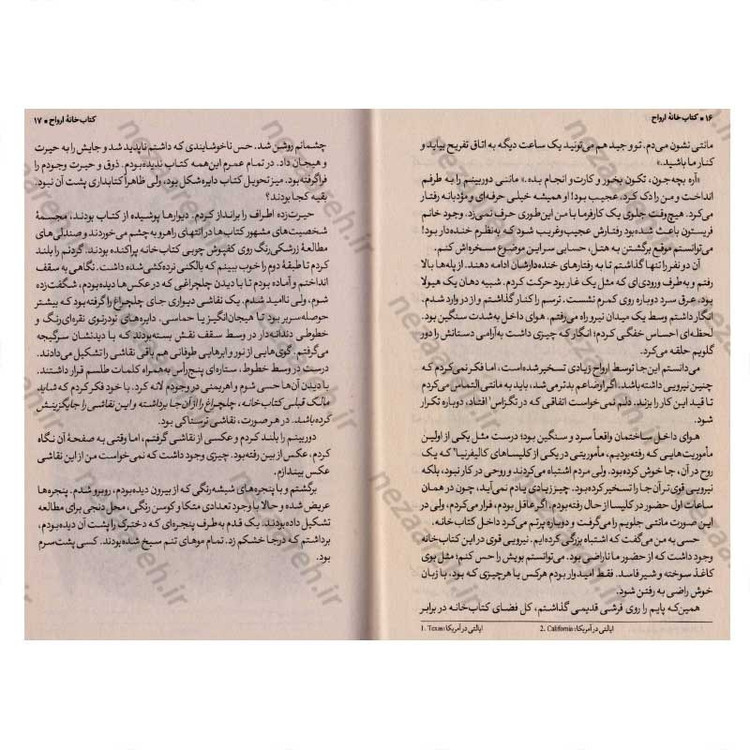 ۱۶ • کتاب‌خانهٔ ارواح
مانتی نشون می‌دم. تو و جید هم می‌تونید یک ساعت دیگه به اتاق تفریح بیاید و
کنار ما باشید.»
«آره بچه‌جون، تکون بخور و کارت و انجام بده.» مانتی دوربینم را به طرفم
انداخت و من را دک کرد. عجیب بود! او همیشه خیلی حرفه‌ای و مؤدبانه رفتار
می‌کرد. هیچ‌وقت جلوی یک کارفرما با من این‌طوری حرف نمی‌زد. وجود خانم
فریستون باعث شده بود رفتارش عجیب‌وغریب شود که به‌نظرم خنده‌دار بود!
می‌توانستم موقع برگشتن به هتل، حسابی سر این موضوع مسخره‌اش کنم.
آن دو نفر را تنها گذاشتم تا به رفتارهای خنده‌دارشان ادامه دهند. از پله‌ها بالا
رفتم و به‌طرف ورودی‌ای که مثل یک غار بود حرکت کردم. شبیه دهان یک هیولا
بود. عرق سرد دوباره روی کمرم نشست. ترسم را کنار گذاشتم و از در وارد شدم.
انگار داشتم وسط یک میدان نیرو راه می‌رفتم. هوای داخل به‌شدت سنگین بود.
لحظه‌ای احساس خفگی کردم؛ انگار که چیزی داشت به‌آرامی دستانش را دور
گلویم حلقه می‌کرد.
می‌دانستم این‌جا توسط ارواح زیادی تسخیر شده‌است، اما فکر نمی‌کردم که
چنین نیرویی داشته باشد. اگر اوضاعم بدتر می‌شد، باید به مانتی التماس می‌کردم
تا قید این کار را بزند. دلم نمی‌خواست اتفاقی که در تگزاس¹ افتاد، دوباره تکرار
شود.
هوای داخل ساختمان واقعاً سرد و سنگین بود؛ درست مثل یکی از اولین
مأموریت‌هایی که رفته‌بودیم، مأموریتی در یکی از کلیساهای کالیفرنیا² که یک
روح در آن، جا خوش کرده‌بود. ولی مردم اشتباه می‌کردند و روحی در کار نبود، بلکه
نیرویی قوی‌تر آن‌جا را تسخیر کرده‌بود. چیز زیادی یادم نمی‌آید، چون در همان
ساعات اول حضور در کلیسا از حال رفته‌بودم. اگر عاقل بودم، فرار می‌کردم، ولی در
این صورت مانتی جلویم را می‌گرفت و دوباره پرتم می‌کرد داخل کتاب‌خانه.
حسی به من می‌گفت که اشتباه بزرگی کرده‌ایم. نیرویی قوی در این کتاب‌خانه
وجود داشت که از حضور ما ناراضی بود. می‌توانستم بویش را حس کنم؛ مثل بوی
کاغذ سوخته و شیر فاسد. فقط امیدوار بودم هرکس یا هرچیزی که بود، با زبان
خوش راضی به رفتن شود.
همین‌که پایم را روی فرشی قدیمی گذاشتم، کل فضای کتاب‌خانه در برابر
1. Texas: ایالتی در آمریکا
2. California: ایالتی در آمریکا
کتاب‌خانهٔ ارواح • ۱۷
چشمانم روشن شد. حس ناخوشایندی که داشتم ناپدید شد و جایش را به حیرت
و هیجان داد. در تمام عمرم این‌همه کتاب ندیده‌بودم. ذوق و حیرت وجودم را
فراگرفته‌بود. میز تحویل کتاب دایره‌شکل بود، ولی ظاهراً کتابداری پشت آن نبود.
بقیه کجا بودند؟
حیرت‌زده اطراف را برانداز کردم. دیوارها پوشیده از کتاب بودند، مجسمهٔ
شخصیت‌های مشهور کتاب‌ها در انتهای راهرو به چشم می‌خوردند و صندلی‌های
مطالعهٔ زرشکی‌رنگ روی کفپوش چوبی کتاب‌خانه پراکنده بودند. گردنم را بلند
کردم تا طبقهٔ دوم را خوب ببینم که بالکنی نرده‌کشی‌شده داشت. نگاهی به سقف
انداختم و آماده بودم تا با دیدن چلچراغی که در عکس‌ها دیده‌بودم، شگفت‌زده
شوم، ولی ناامید شدم. یک نقاشی دیواری جای چلچراغ را گرفته‌بود که بیشتر
حوصله‌سربر بود تا هیجان‌انگیز یا حماسی. دایره‌های تودرتوی نقره‌ای‌رنگ و
خطوطی دندانه‌دار در وسط سقف نقش بسته‌بودند که با دیدنشان سرگیجه
می‌گرفتم. گوی‌هایی از نور و ابرهایی طوفانی هم باقی نقاشی را تشکیل می‌دادند.
درست در وسط خطوط، ستاره‌ای پنج‌رأس به‌همراه کلمات طلسم قرار داشتند.
با دیدن آن‌ها حسی شوم و اهریمنی در وجودم لانه کرد. با خود فکر کردم که شاید
مالک قبلی کتاب‌خانه، چلچراغ را از آن‌جا برداشته و این نقاشی را جایگزینش
کرده‌باشد. در هر صورت، نقاشی ترسناکی بود.
دوربینم را بلند کردم و عکسی از نقاشی گرفتم، اما وقتی به صفحهٔ آن نگاه
کردم، عکس از بین رفته‌بود. چیزی وجود داشت که نمی‌خواست من از این نقاشی
عکس بیندازم.
برگشتم و با پنجره‌های شیشه‌رنگی که از بیرون دیده‌بودم، روبرو شدم. پنجره‌ها
عریض شده و حالا با وجود تعدادی متکا و کوسن رنگی، محل دنجی برای مطالعه
تشکیل داده‌بودند. یک قدم به‌طرف پنجره‌ای که دخترک را پشت آن دیده‌بودم،
برداشتم که درجا خشکم زد. تمام موهای تنم سیخ شده‌بودند. کسی پشت‌سرم
بود.
nezaareh.ir